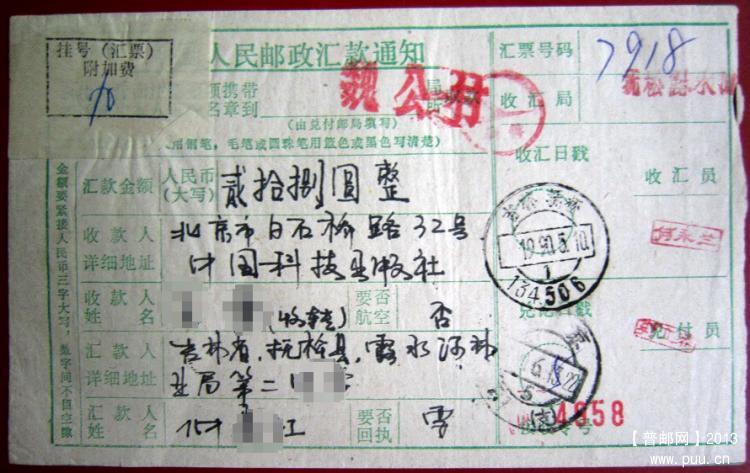 挂号（汇票）
附加费
人民邮政汇款通知
汇票号码
7918
携带
名章到
魏公村
收汇局
（由兑付邮局填写）
用钢笔，毛笔或圆珠笔用蓝色或黑色写清楚）
收汇日戳
收汇员
汇款金额
人民币
（大写）
贰拾捌圆整
收款人
详细地址
北京市白石桥路32号
中国科技出版社
1990.5.10
134506
收款人
姓名
(收转)
要否
航空
否
兑付员
汇款人
详细地址
吉林省，抚松县，露水河林
业局第二
汇款人
姓名
江
要否
回执
4858
金额要紧接人民币三字大写，数字间不留空隙
【普邮网】2013
www.puu.cn